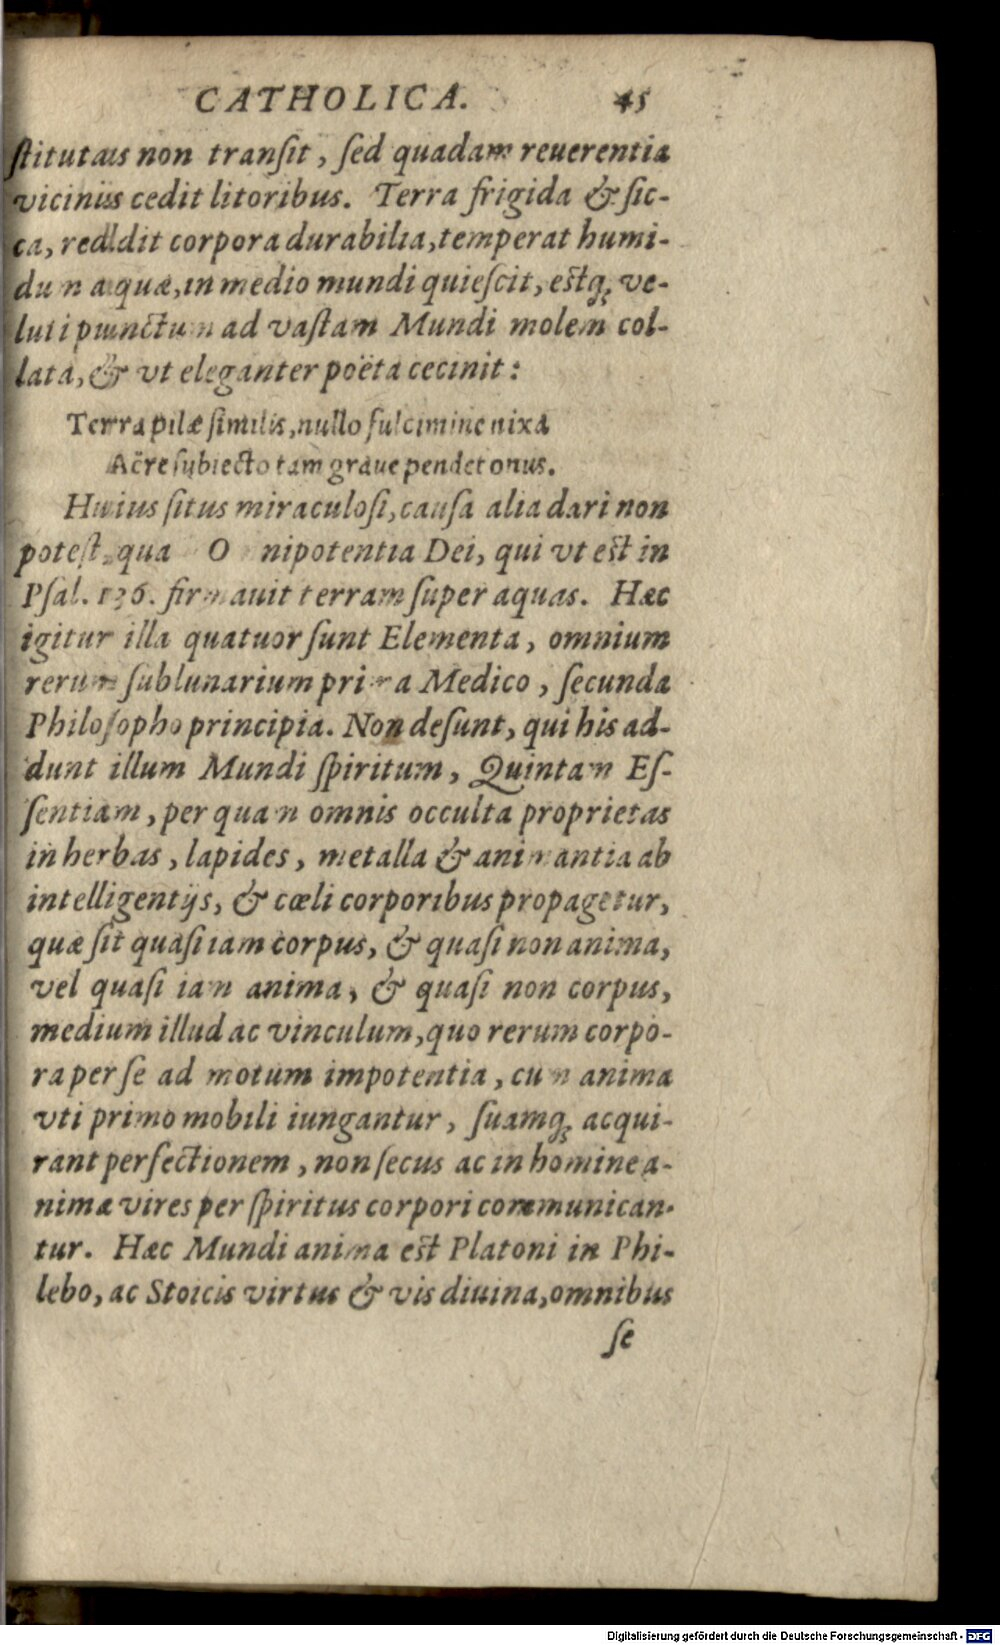 CATHOLICA. 45
ſtitutas non tranſit, ſed quadam reuerentia
viciniis cedit litoribus. Terra frigida & ſic-
ca, reddit corpora durabilia, temperat humi-
dum aquæ, in medio mundi quieſcit, eſtq́ꝫ ve-
luti punctum ad vaſtam Mundi molem col-
lata, & vt eleganter poëta cecinit:
Terra pilæ ſimilis, nullo fulcimine nixa
Aëre ſubiecto tam graue pendet onus.
Huius ſitus miraculoſi, cauſa alia dari non
poteſt, qua Omnipotentia Dei, qui vt eſt in
Pſal. 136. firmauit terram ſuper aquas. Hæc
igitur illa quatuor ſunt Elementa, omnium
rerum ſublunarium prima Medico, ſecunda
Philoſopho principia. Non deſunt, qui his ad-
dunt illum Mundi ſpiritum, Quintam Eſ-
ſentiam, per quam omnis occulta proprietas
in herbas, lapides, metalla & animantia ab
intelligentijs, & cœli corporibus propagetur,
quæ ſit quaſi iam corpus, & quaſi non anima,
vel quaſi iam anima, & quaſi non corpus,
medium illud ac vinculum, quo rerum corpo-
ra per ſe ad motum impotentia, cum anima
vti primo mobili iungantur, ſuamq́ꝫ acqui-
rant perfectionem, non ſecus ac in homine a-
nimæ vires per ſpiritus corpori communican-
tur. Hæc Mundi anima eſt Platoni in Phi-
lebo, ac Stoicis virtus & vis diuina, omnibus
ſe
Digitalisierung gefördert durch die Deutsche Forschungsgemeinschaft - DFG